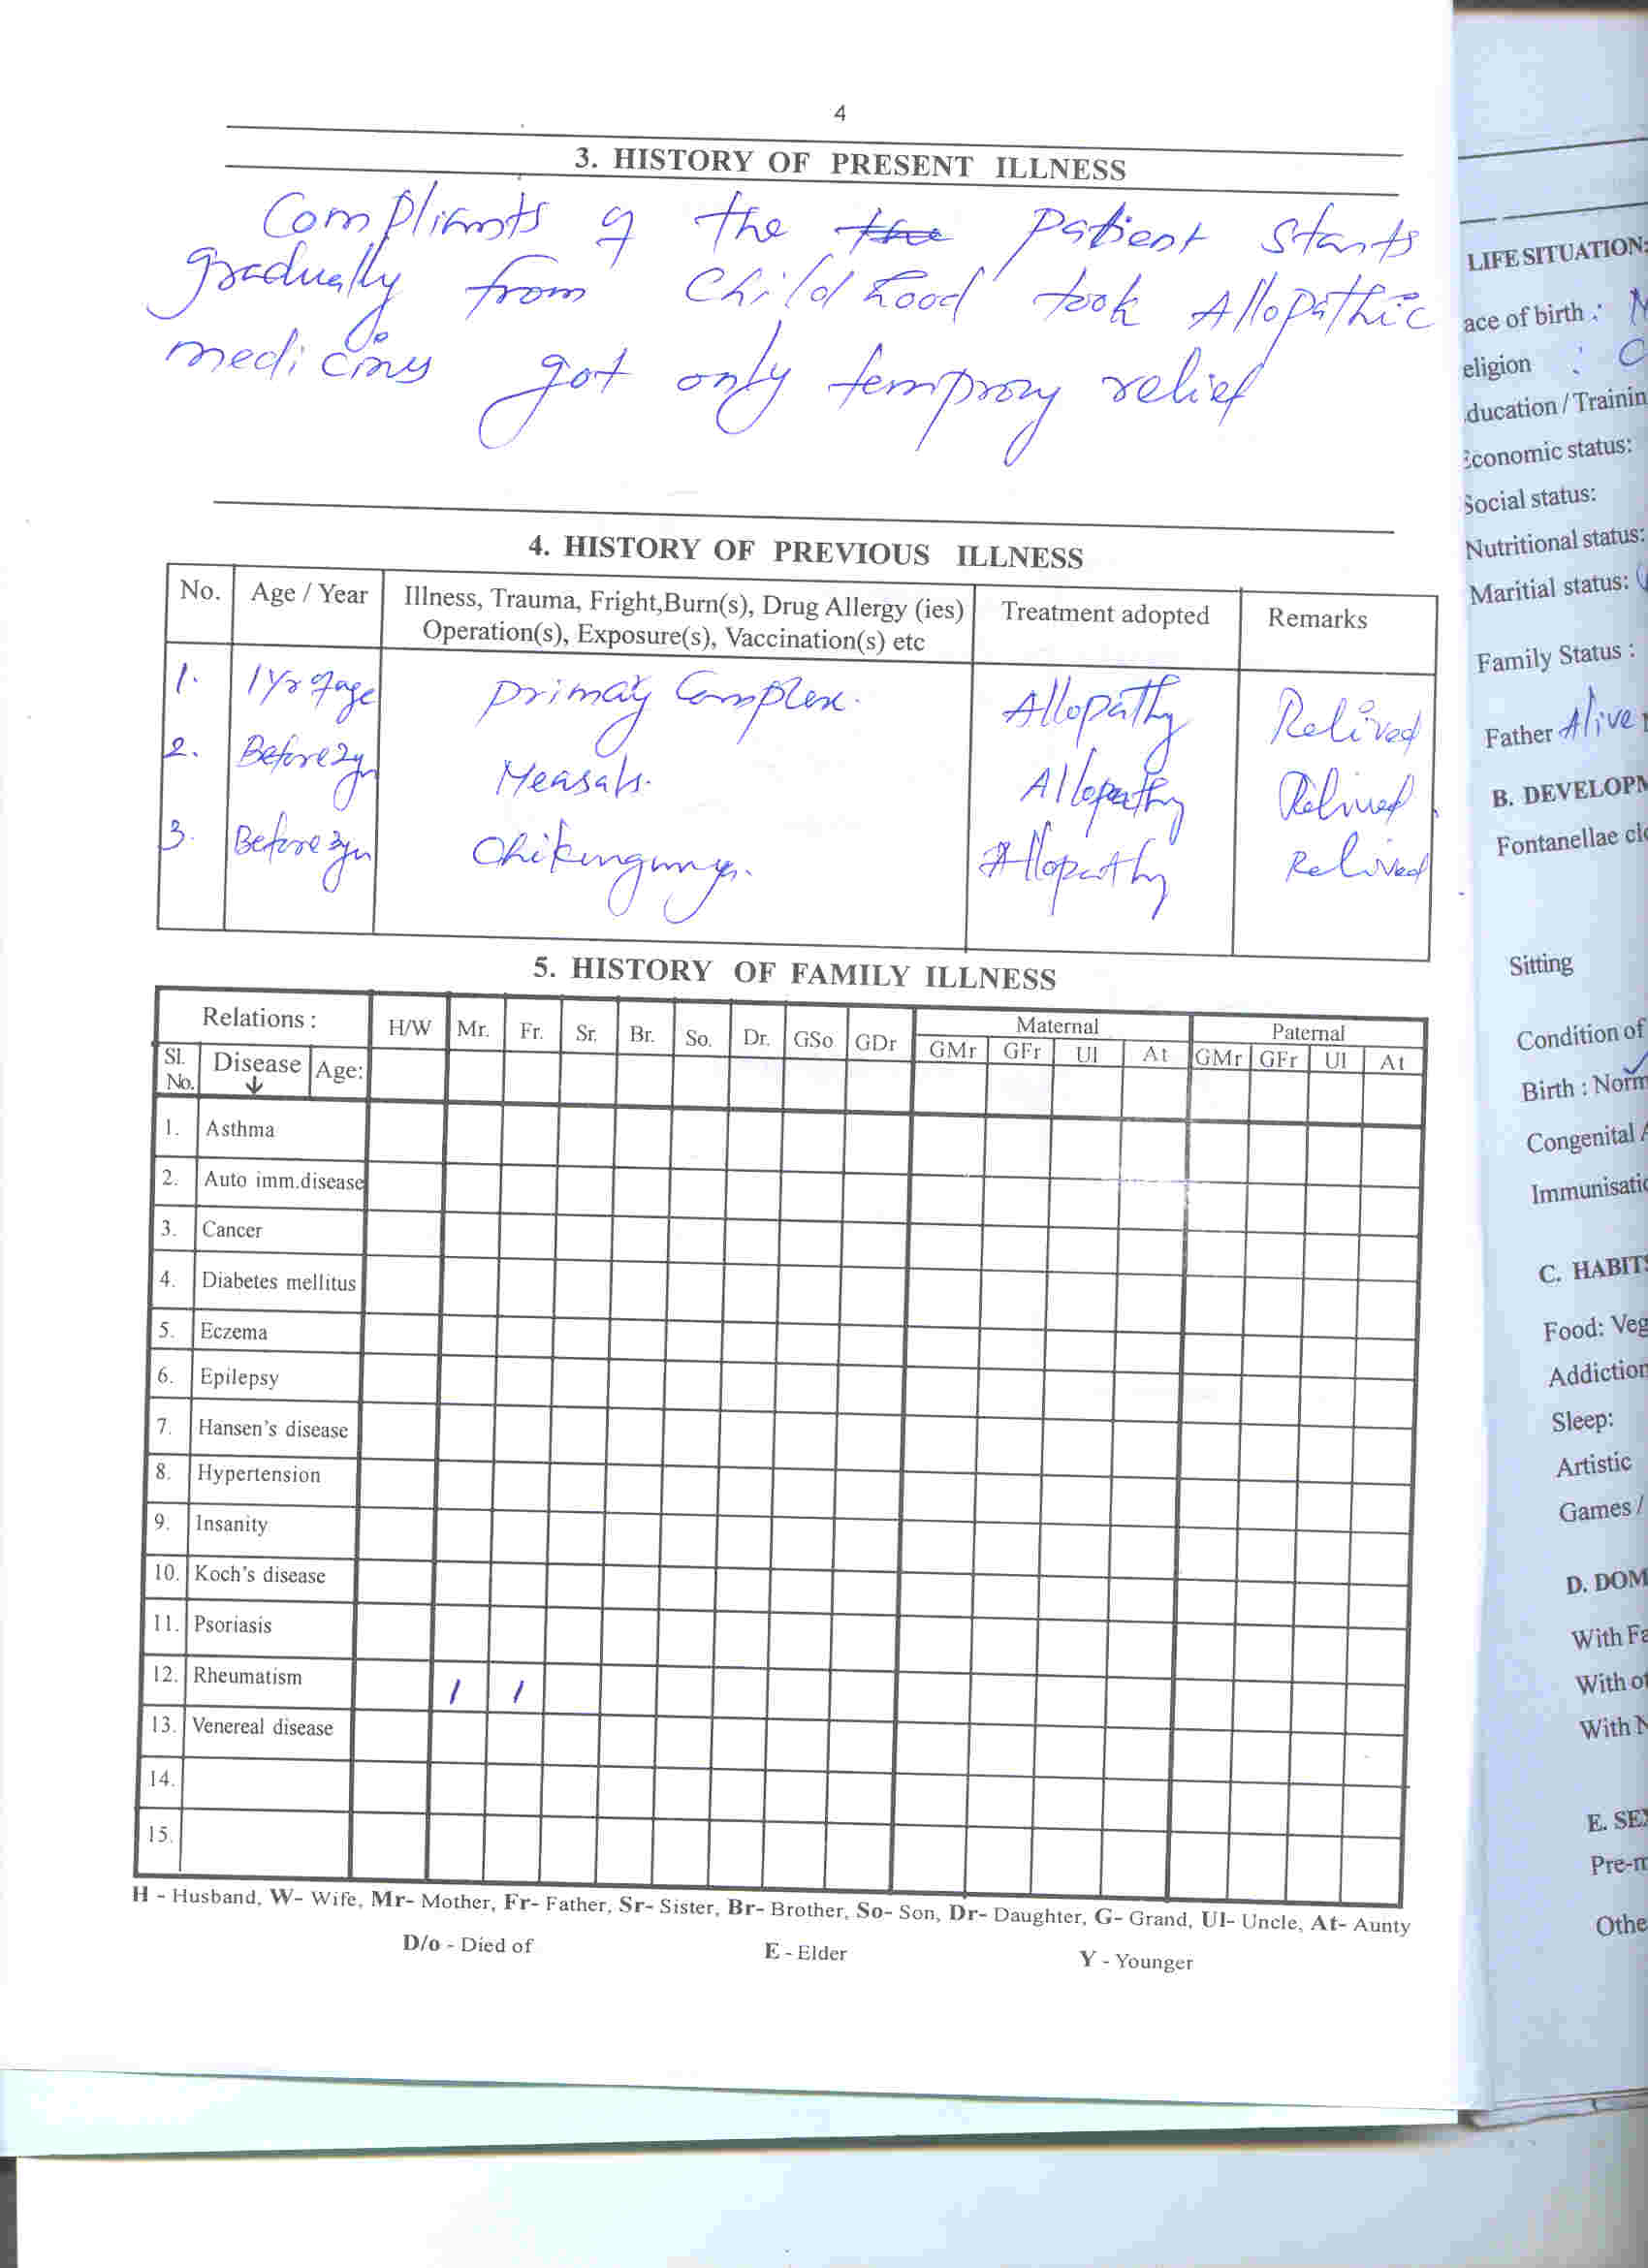 4
3. HISTORY OF PRESENT ILLNESS
Complients of the the Patient starts
gradually from Childhood took Allopathic
medicins got only temprory relief
4. HISTORY OF PREVIOUS ILLNESS
No. Age / Year Illness, Trauma, Fright,Burn(s), Drug Allergy (ies) Treatment adopted Remarks
Operation(s), Exposure(s), Vaccination(s) etc
1. 1 Yr of age Primary Complex. Allopathy Relived
2. Before 2yr Measals. Allopathy Relived
3. Before 3yr Chikungunya. Allopathy Relived
5. HISTORY OF FAMILY ILLNESS
Relations : H/W Mr. Fr. Sr. Br. So. Dr. GSo GDr Maternal Paternal
GMr GFr Ul At GMr GFr Ul At
Sl. No. Disease ↓ Age:
1. Asthma
2. Auto imm.disease
3. Cancer
4. Diabetes mellitus
5. Eczema
6. Epilepsy
7. Hansen's disease
8. Hypertension
9. Insanity
10. Koch's disease
11. Psoriasis
12. Rheumatism / /
13. Venereal disease
14.
15.
H - Husband, W- Wife, Mr- Mother, Fr- Father, Sr- Sister, Br- Brother, So- Son, Dr- Daughter, G- Grand, Ul- Uncle, At- Aunty
D/o - Died of E - Elder Y - Younger
LIFE SITUATION:
ace of birth :
eligion :
ducation / Trainin
Economic status:
Social status:
Nutritional status:
Maritial status:
Family Status :
Father Alive
B. DEVELOPM
Fontanellae clo
Sitting
Condition of
Birth : Norm
Congenital A
Immunisatio
C. HABITS
Food: Veg
Addiction
Sleep:
Artistic
Games /
D. DOM
With Fa
With ot
With N
E. SEX
Pre-m
Othe